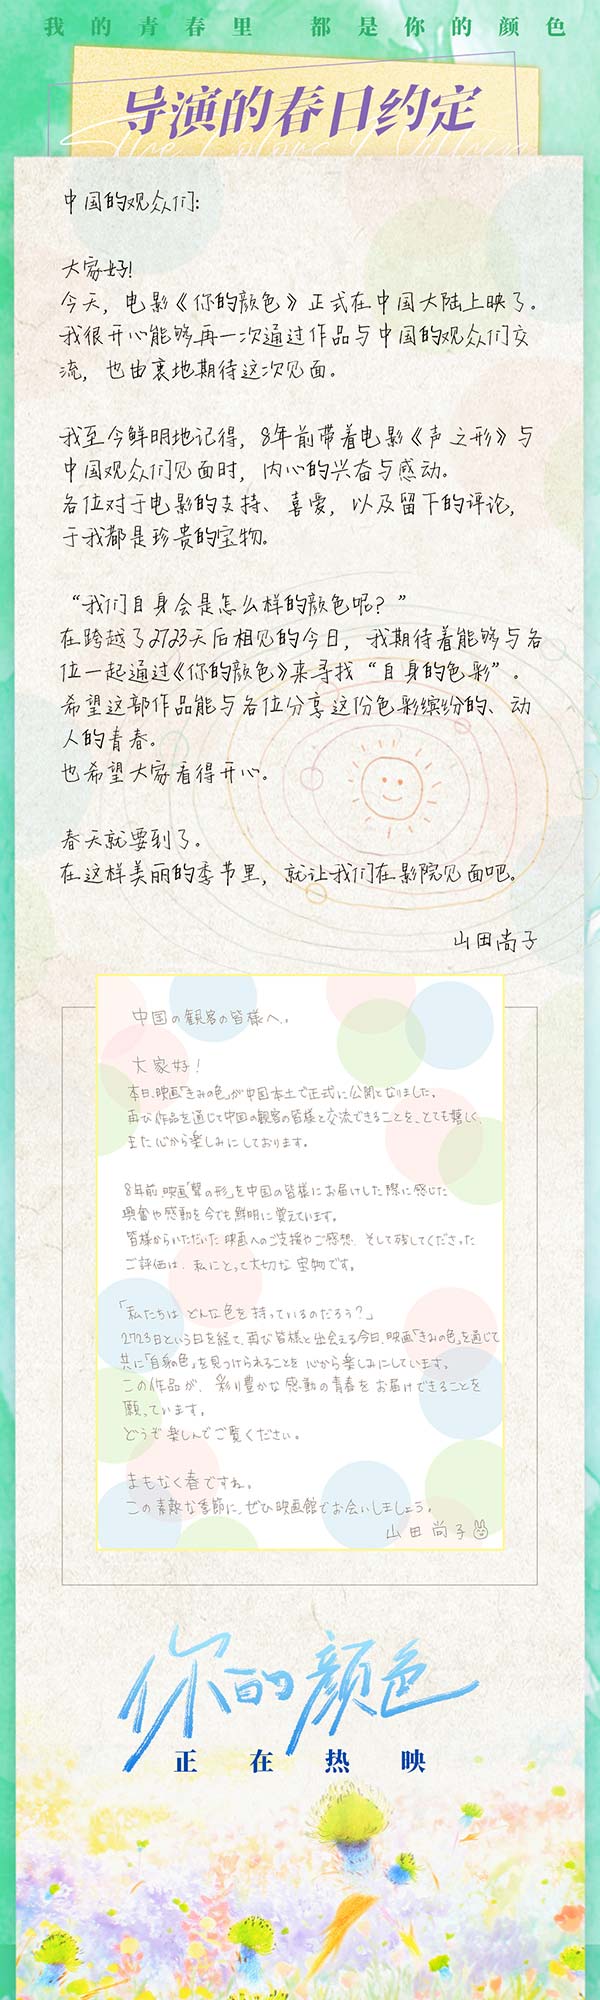 我的青春里 都是你的颜色
导演的春日约定
中国的观众们:
大家好!
今天，电影《你的颜色》正式在中国大陆上映了。
我很开心能够再一次通过作品与中国的观众们交
流，也由衷地期待这次见面。
我至今鲜明地记得，8年前带着电影《声之形》与
中国观众们见面时，内心的兴奋与感动。
各位对于电影的支持、喜爱，以及留下的评论，
于我都是珍贵的宝物。
“我们自身会是怎么样的颜色呢？”
在跨越了2723天后相见的今日，我期待着能够与各
位一起通过《你的颜色》来寻找“自身的色彩”。
希望这部作品能与各位分享这份色彩缤纷的、动
人的青春。
也希望大家看得开心。
春天就要到了。
在这样美丽的季节里，就让我们在影院见面吧。
山田尚子
中国の観客の皆様へ、
大家好！
本日、映画「きみの色」が中国本土で正式に公開となりました。
再び作品を通じて中国の観客の皆様と交流できることを、とても嬉しく、
また心から楽しみにしております。
8年前、映画「聲の形」を中国の皆様にお届けした際に感じた
興奮や感動を今でも鮮明に覚えています。
皆様からいただいた映画へのご支援やご感想、そして残してくださった
ご評価は、私にとって大切な宝物です。
「私たちは どんな色を持っているのだろう？」
2723日という日を経て、再び皆様と出会える今日、映画「きみの色」を通じて
共に「自身の色」を見つけられることを心から楽しみにしています。
この作品が、彩り豊かな感動の青春をお届けできることを
願っています。
どうぞ楽しんでご覧ください。
まもなく春ですね。
この素敵な季節に、ぜひ映画館でお会いしましょう。
山田尚子
你的颜色
正在热映